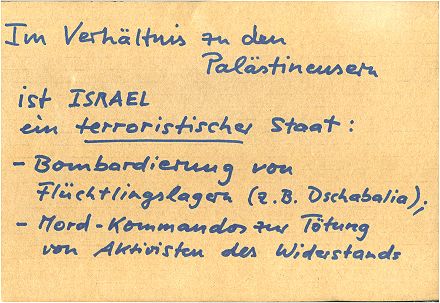 Im Verhältnis zu den
Palästinensern
ist ISRAEL
ein terroristischer Staat:
- Bombardierung von
Flüchtlingslagern (z.B. Dschabalia);
- Mord-Kommandos zur Tötung
von Aktivisten des Widerstands